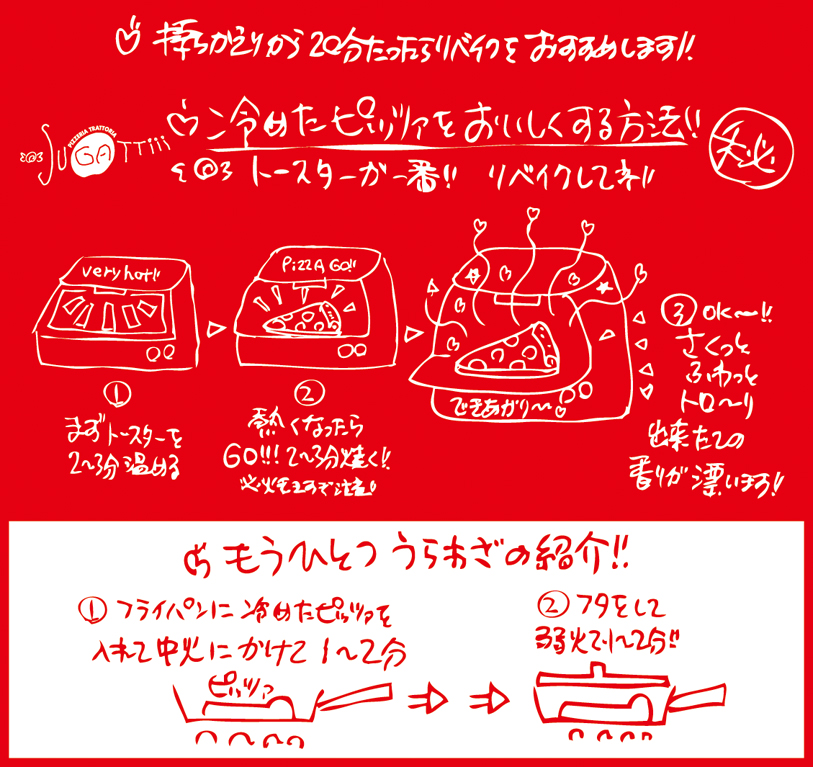 持ちかえりから20分たったらリベイクをおすすめします!!
PIZZERIA TRATTORIA
JUGATTiii
冷めたピッツァをおいしくする方法!!
秘
トースターが一番!! リベイクしてネ!!
very hot!!
PiZZA GO!!
できあがり〜
①
まずトースターを
2〜3分温める
②
熱くなったら
GO!!! 2〜3分焼く!!
③ OK〜!!
さくっと
ふわっと
トロ〜リ
出来たての
香りが漂います!!
もうひとつ うらわざの紹介!!
① フライパンに冷めたピッツァを
入れて中火にかけて 1〜2分
ピッツァ
② フタをして
弱火で1〜2分!!